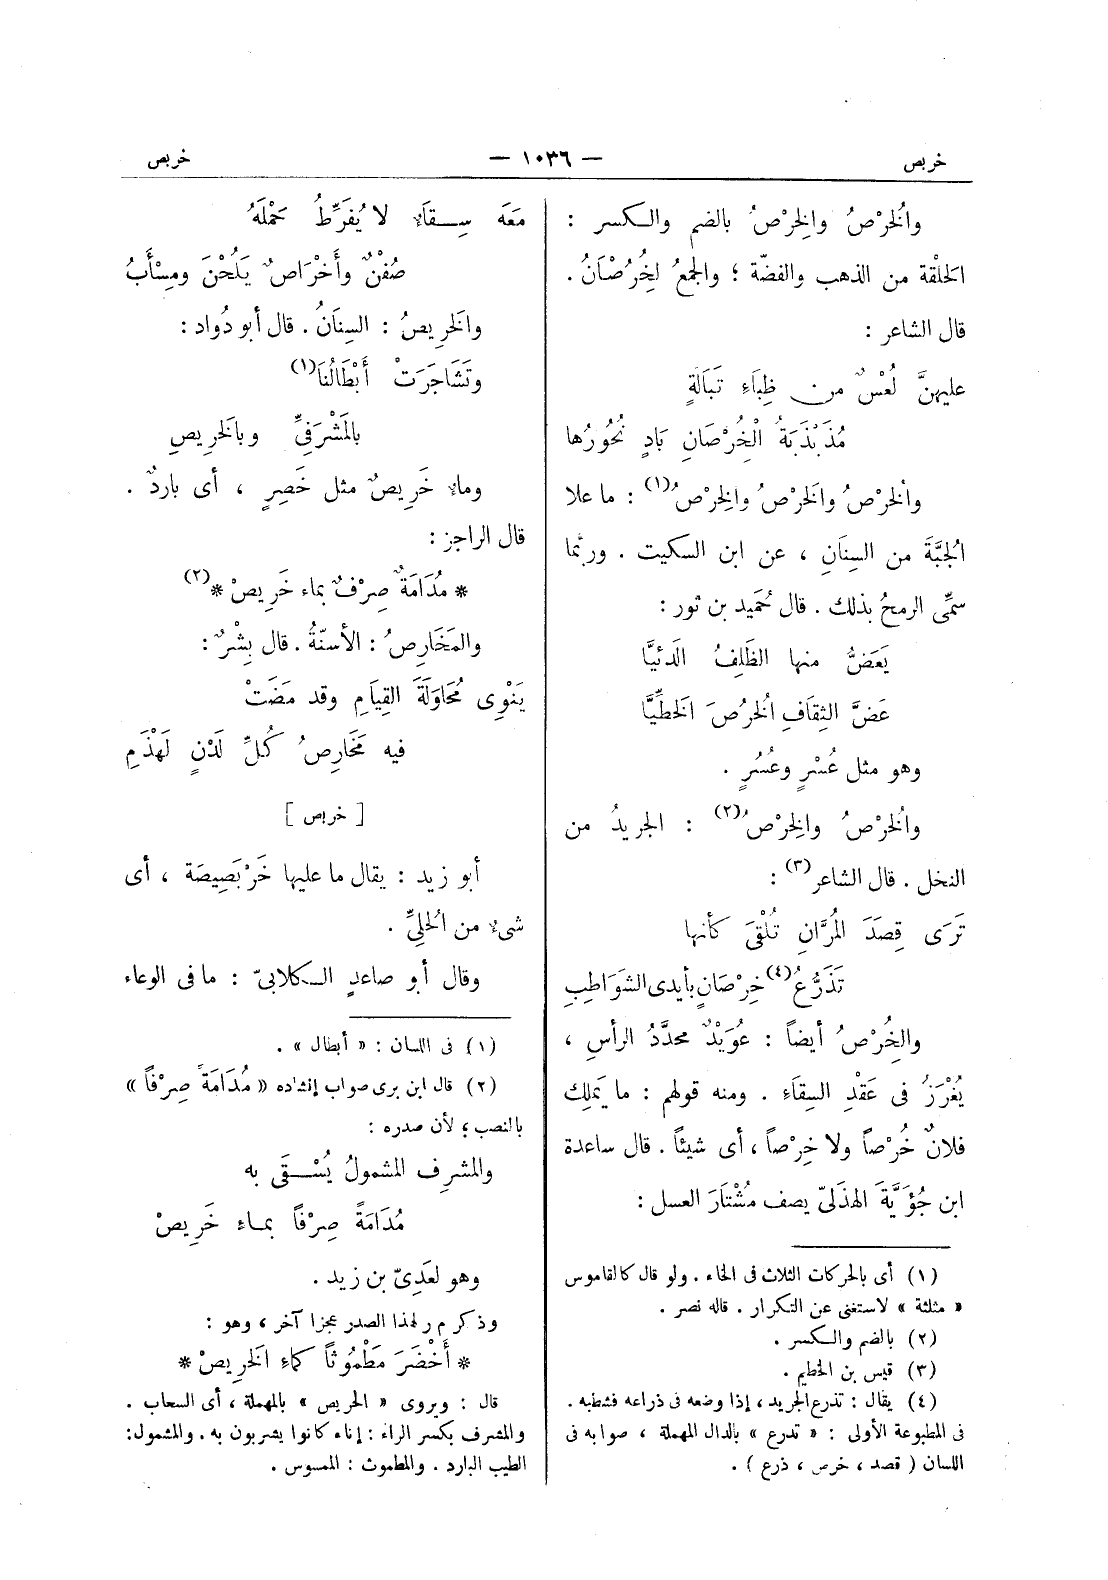 خربص — ١٠٣٦ — خربص
والخُرْصُ والخِرْصُ بالضم والكسر :
الحَلْقة من الذهب والفضّة ؛ والجمعُ الخُرُصْانُ .
قال الشاعر :
عليهنَّ لُعْسٌ من ظِبَاءِ تَبَالَةٍ
مُذَبْذَبَةُ الْخُرْصَانِ بَادٍ نُحُورُها
والخُرْصُ والخَرْصُ والخِرْصُ(١) : ما علا
الجُبَّةَ من السِنَانِ ، عن ابن السكيت . وربَّما
سمِّى الرمحُ بذلك . قال حُمَيد بن ثور :
يَعَضُّ منها الظَلِفُ الدَئيَّا
عَضَّ الثِقَافِ الخُرُصَ الخَطِّيَّا
وهو مثل عُسْرٍ وعُسُرٍ .
والخُرْصُ والخِرْصُ(٢) : الجريدُ من
النخل . قال الشاعر(٣) :
تَرَى قِصَدَ المُرَّانِ تُلْقَى كأنها
تَذَرُّعُ(٤) خِرْصَانٍ بأيدى الشَوَاطِبِ
والخُرْصُ أيضاً : عُوَيْدٌ محدَّدُ الرأسِ ،
يُغْرَزُ فى عَقْدِ السِقَاءِ . ومنه قولهم : ما يَملِك
فلانٌ خُرْصاً ولا خِرْصاً ، أى شيئاً . قال ساعدة
ابن جُؤَيَّةَ الهذلىّ يصف مُشْتَارَ العسل :
(١) أى بالحركات الثلاث فى الخاء . ولو قال كالقاموس
« مثلثة » لاستغنى عن التكرار . قاله نصر .
(٢) بالضم والكسر .
(٣) قيس بن الخطيم .
(٤) يقال : تذرع الجريد ، إذا وضعه فى ذراعه فشطبه .
فى المطبوعة الأولى : « تدرع » بالدال المهملة ، صوابه فى
اللسان ( قصد ، خرص ، ذرع ) .
مَعَه سِقَاءٌ لا يُفَرِّطُ حَمْلَهُ
صُفْنٌ وأَخْرَاصٌ يَلُحْنَ ومِسْأَبُ
والخَرِيصُ : السِنَانُ . قال أبو دُواد :
وتَشَاجَرَتْ أَبْطَالُنَا(١)
بالمَشْرَفىِّ وبالخَرِيصِ
وماء خَرِيصٌ مثل خَصِرٍ ، أى باردٌ .
قال الراجز :
* مُدَامَةٌ صِرْفٌ بماء خَرِيصْ *(٢)
والمَخَارِصُ : الأسنّةُ . قال بِشْرٌ :
يَنْوِى مُحَاوَلَةَ القِيَامِ وقد مَضَتْ
فيه مَخَارِصُ كُلِّ لَدْنٍ لَهْذَمِ
[ خربص ]
أبو زيد : يقال ما عليها خَرْبَصِيصَة ، أى
شىء من الحُلِىِّ .
وقال أبو صاعدٍ الكلابىّ : ما فى الوعاء
(١) فى اللسان : « أبطال » .
(٢) قال ابن برى صواب إنشاده « مُدَامَةً صِرْفاً »
بالنصب ؛ لأن صدره :
والمشرف المشمولُ يُسْقَى به
مُدَامَةً صِرْفاً بماء خَرِيصْ
وهو لعَدِىّ بن زيد .
وذكر م ر لهذا الصدر عجزا آخر ، وهو :
* أَخْضَرَ مَطْمُوثاً كماءِ الخَرِيصْ *
قال : ويروى « الحريص » بالمهملة ، أى السحاب .
والمشرف بكسر الراء : إناء كانوا يشربون به . والمشمول :
الطيب البارد . والمطموث : الممسوس .